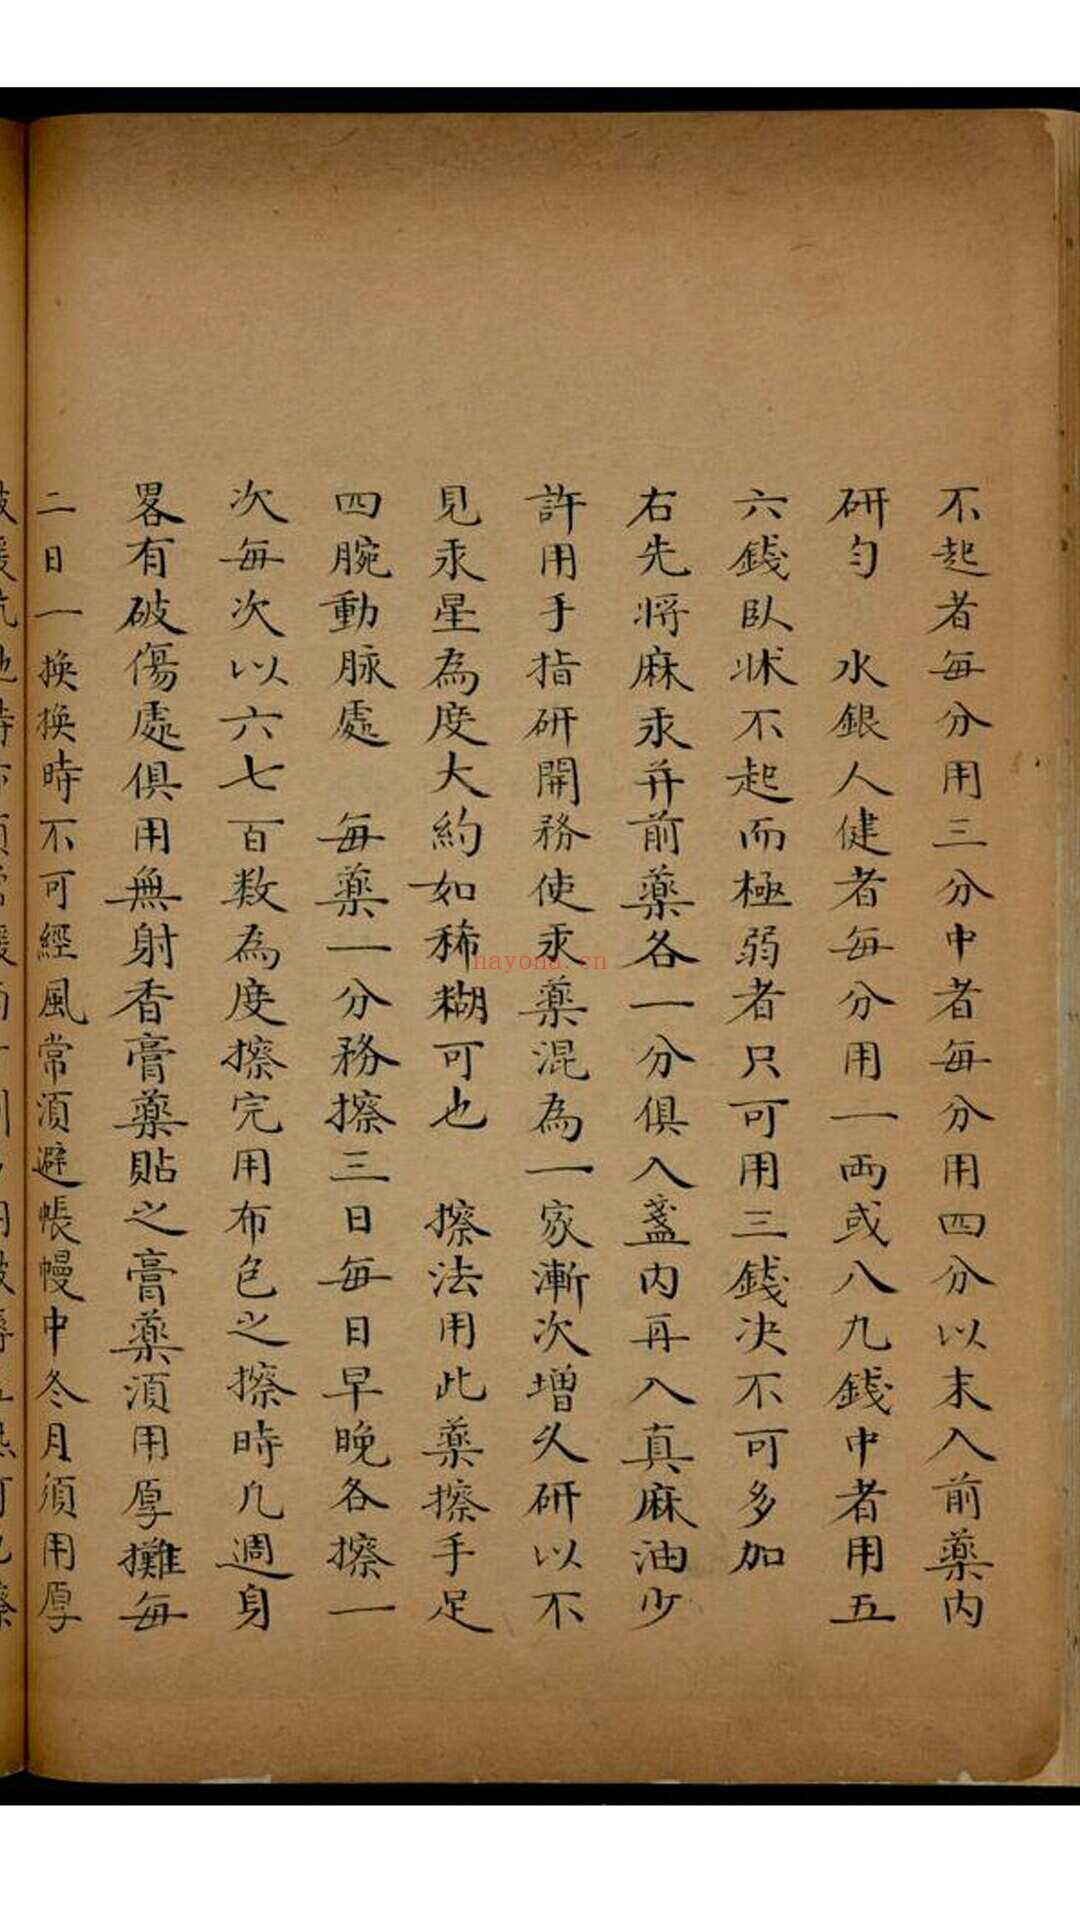 不起者每分用三分中者每分用四分以末入前薬内
研勻　水銀人健者每分用一両或八九錢中者用五
六錢臥牀不起而極弱者只可用三錢决不可多加
右先将麻汞并前薬各一分俱入盞内再入真麻油少
許用手指研開務使汞薬混為一家漸次增乆研以不
見汞星為度大約如稀糊可也　擦法用此薬擦手足
四腕動脉處　每薬一分務擦三日每日早晚各擦一
次每次以六七百数為度擦完用布包之擦時凢週身
畧有破傷處俱用無射香膏薬貼之膏薬湏用厚攤每
二日一換換時不可經風常湏避帳幔中冬月須用厚
hayona.cn